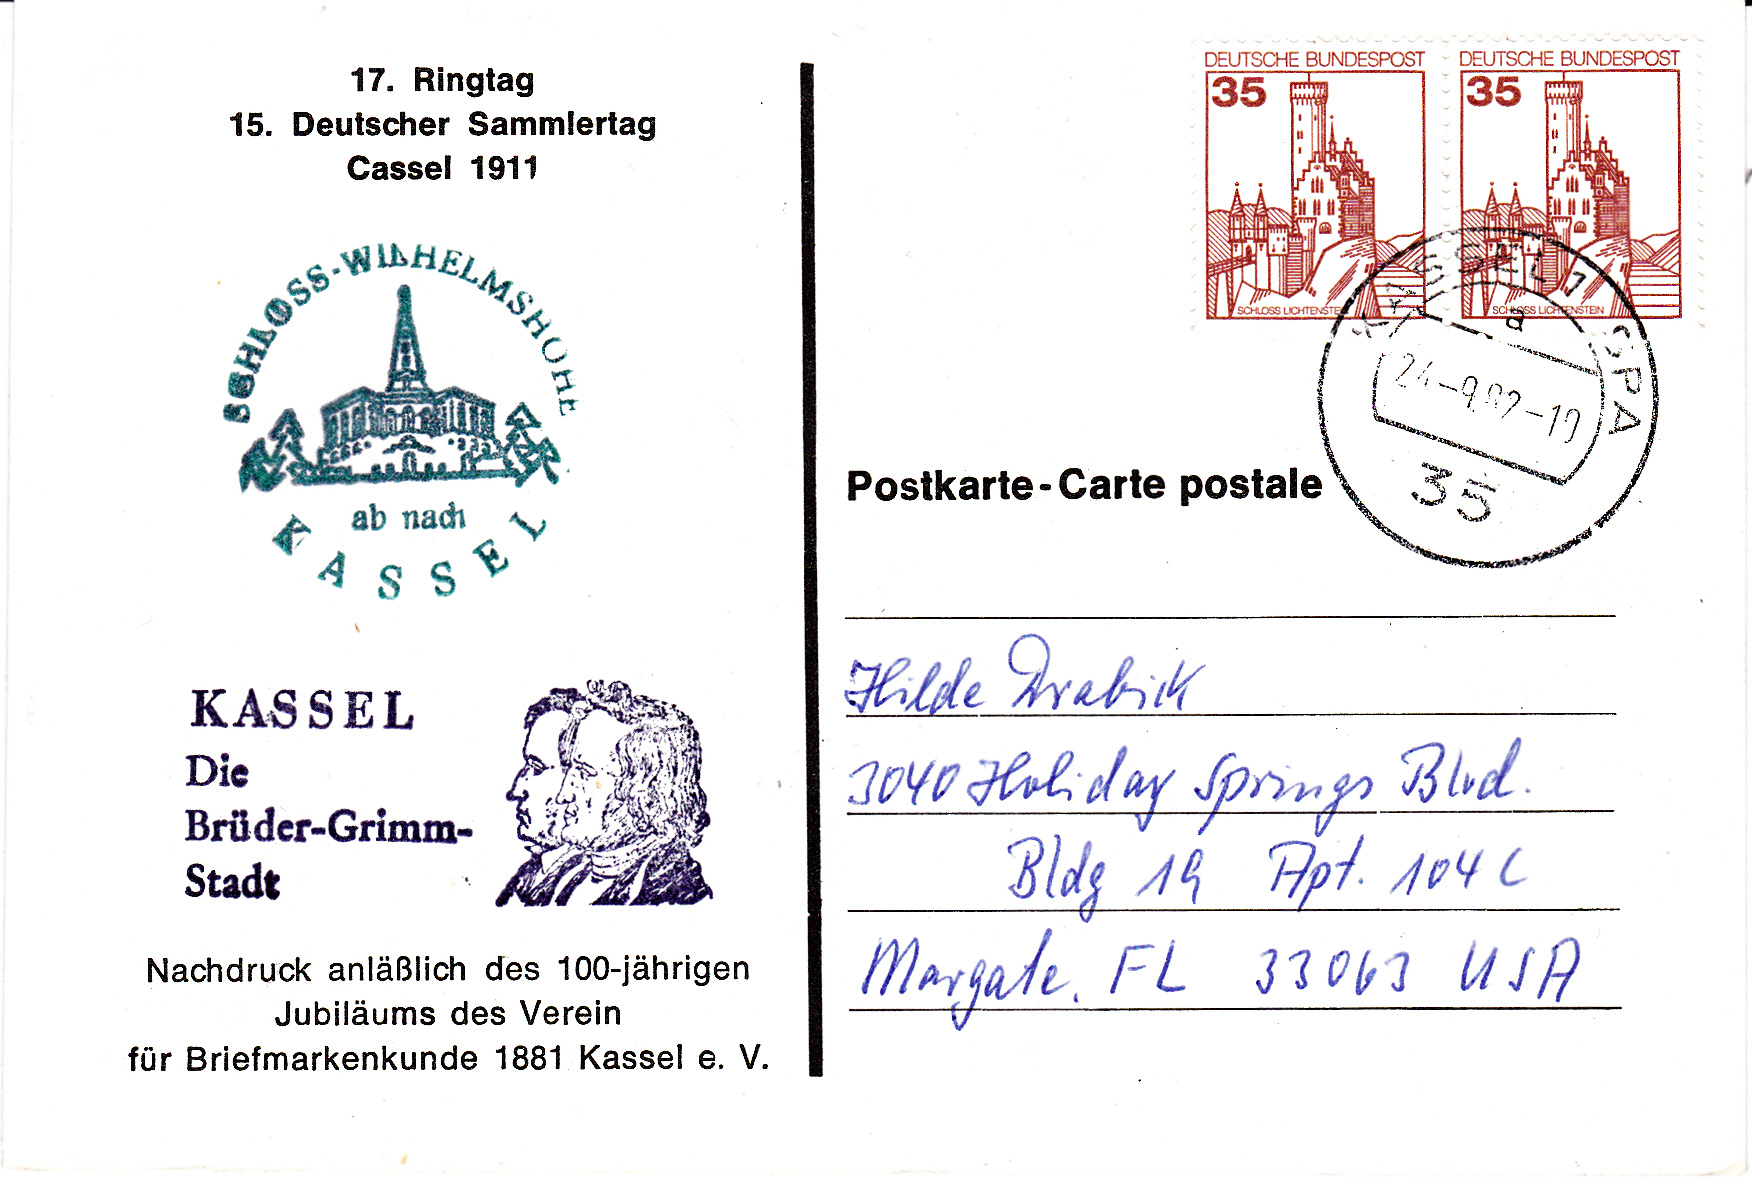 17. Ringtag
15. Deutscher Sammlertag
Cassel 1911
SCHLOSS-WILHELMSHÖHE
ab nach
KASSEL
KASSEL
Die
Brüder-Grimm-
Stadt
Nachdruck anläßlich des 100-jährigen
Jubiläums des Verein
für Briefmarkenkunde 1881 Kassel e. V.
DEUTSCHE BUNDESPOST
35
SCHLOSS LICHTENSTEIN
DEUTSCHE BUNDESPOST
35
SCHLOSS LICHTENSTEIN
KASSEL 1 SPA
a
24-9.82-10
35
Postkarte-Carte postale
Hilde Drabick
3040 Holiday Springs Blvd.
Bldg 19 Apt. 104 C
Margate, FL 33063 USA